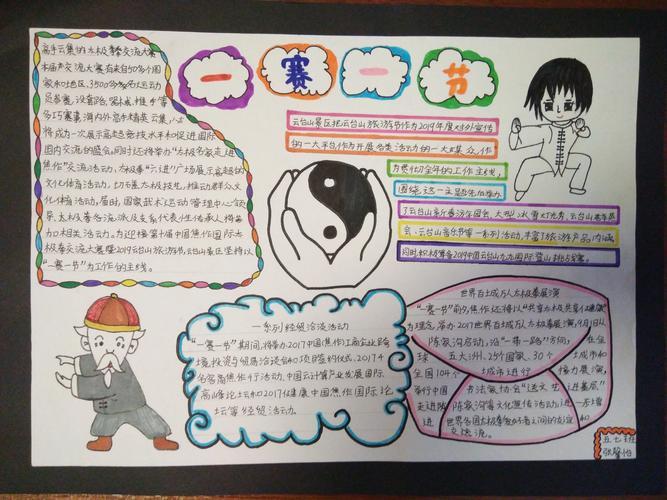 一赛一节
高手云集的太极拳交流大赛
本届交流大赛有来自50多个国
家和地区、3500多名运动
员参赛,设套路、器械、推手等
多巧赛事,海内外高手精英云集,
将成为一次展示高超竞技水平和促进国际
国内交流的盛会。同时还将举办“太极名家走进
焦作”交流活动,太极拳“六进”广场展示高超的
文化体育活动,切磋太极技艺,推动群众文
化体育活动。届时,国家武术运动管理中心领
导、太极拳各流派及支系代表性传承人将参
加相关活动。为迎接第十届中国焦作国际太
极拳交流大赛暨2019云台山旅游节,云台山景区坚持以
“一赛一节”为工作的主线。
云台山景区把云台山旅游节作为2019年度对外宣传
的一大平台作为开展各类活动的一大聚众,作
为贯彻全年的工作主线,
围绕这一主题先后举办
了云台山新春游乐园会、大型冰雪灯光秀、云台山
会、云台山音乐节等一系列活动,丰富了旅游产品内涵
同时积极筹备2019中国云台山九九国际登山挑战赛。
一系列经贸洽谈活动
“一赛一节”期间,将举办2017中国(焦作)工商企业跨
境投资与贸易洽谈会40项目签约仪式、2017
名客商焦作行活动、中国云计算产业发展国际
高峰论坛和2017健康中国焦作国际论
坛等经贸活动。
世界百城万人太极拳展演
“一赛一节”前夕,焦作还将以“共享太极 共享健康”
为理念,举办2017世界百城万人太极拳展演,9月1日从
陈家沟启动,沿“一带一路”方向,在全
球五大洲、25个国家、30个城市和
全国104个城市进行接力展演,
举行中国书法家协会“送文艺进基层”
走进陈家沟等文化宣传活动,进一步增
进世界各国太极拳爱好者之间的友谊和
交流。
五七班
张馨怡